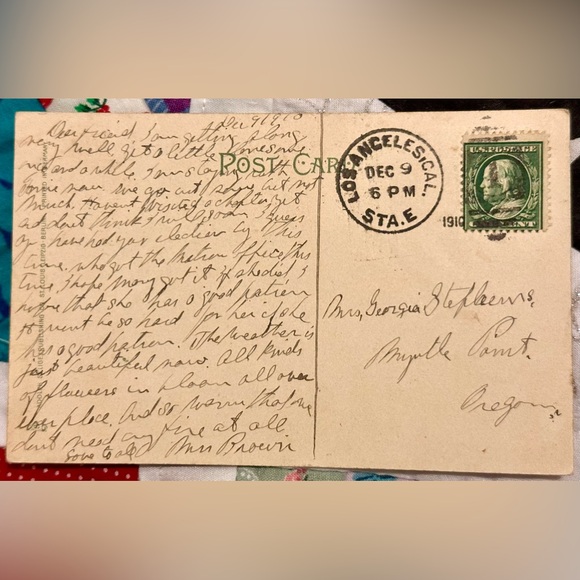 Dec 9 1910
Dear Friend I am getting along
very well get a little lonesome
once and a while. I am staying with
some now. We go out some but not
much. Havent visited a chapter yet
but dont think I will soon. I guess
you have had your election by this
time. who got the Matron office this
time. I hope Mary got it if she did I
hope that she has a good patron
it wont be so hard for her if she
has a good patron. The weather is
just beautiful now. All kinds
of flowers in bloom all over
every place. And so warm that we
dont need any fire at all
Love to all Mrs Brown
POST CARD
LOS ANGELES, CAL.
DEC 9
6 PM
STA. E
1910
U.S. POSTAGE
Mrs. Georgia Stephens.
Myrtle Point.
Oregon.